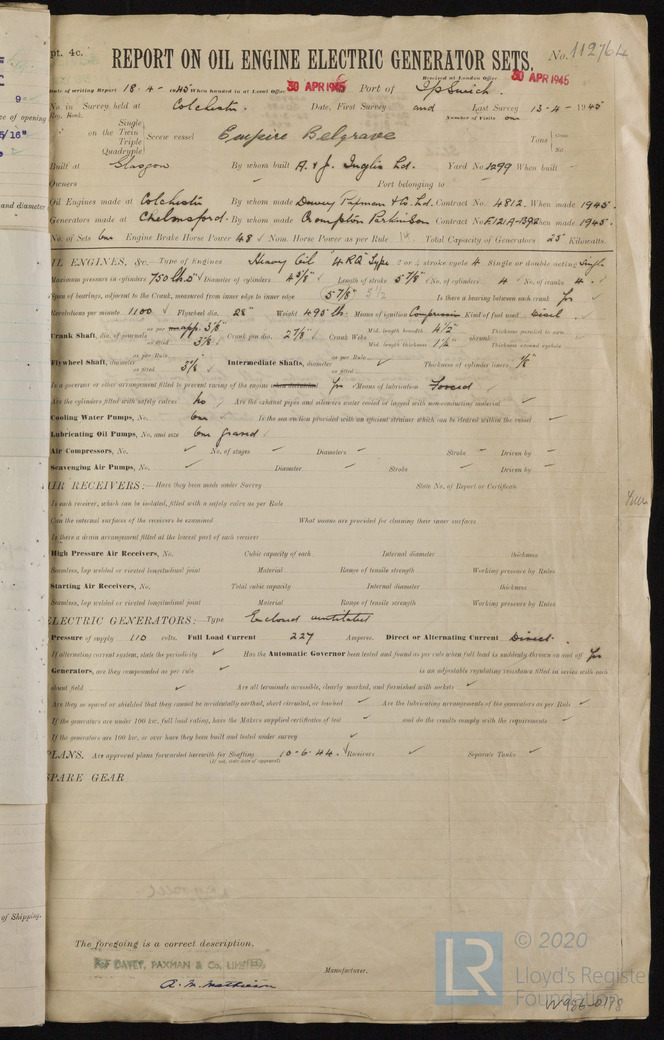 pt. 4c.
REPORT ON OIL ENGINE ELECTRIC GENERATOR SETS.
No. 112764
Received at London Office 30 APR 1945
Date of writing Report 18-4-1945 When handed in at Local Office 30 APR 1945 Port of Ipswich.
No in Survey held at Colchester. Date, First Survey and Last Survey 13-4-1945
Reg. Book. Number of Visits one
on the Single Twin Triple Quadruple Screw vessel Empire Belgrave Tons Gross Net
Built at Glasgow By whom built A. & J. Inglis Ld. Yard No. 1299 When built
Owners Port belonging to
Oil Engines made at Colchester By whom made Davey Paxman & Co. Ld. Contract No. 4812. When made 1945.
Generators made at Chelmsford. By whom made Crompton Parkinson Contract No. When made 1945.
No. of Sets One Engine Brake Horse Power 48 Nom. Horse Power as per Rule Total Capacity of Generators 25 Kilowatts.
OIL ENGINES, &c. Type of Engines Heavy Oil 4RQ Type. 2 or 4 stroke cycle 4 Single or double acting Single
Maximum pressure in cylinders 750 lbs. Diameter of cylinders 4 3/8" Length of stroke 5 7/8" No. of cylinders 4 No. of cranks 4
Span of bearings, adjacent to the Crank, measured from inner edge to inner edge 5 7/8" Is there a bearing between each crank Yes
Revolutions per minute 1100 Flywheel dia. 28" Weight 495 lbs. Means of ignition Compression Kind of fuel used Diesel
Crank Shaft, dia. of journals as per Rule as fitted Crank pin dia. 2 7/8" Crank Webs Mid. length breadth 4 1/2" Mid. length thickness 1 1/2" shrunk Thickness parallel to axis Thickness around eyehole
Flywheel Shaft, diameter as per Rule as fitted Intermediate Shafts, diameter as per Rule as fitted Thickness of cylinder liners
Is a governor or other arrangement fitted to prevent racing of the engine Yes Means of lubrication Forced
Are the cylinders fitted with safety valves No Are the exhaust pipes and silencers water cooled or lagged with non-conducting material
Cooling Water Pumps, No. One Is the sea suction provided with an efficient strainer which can be cleared within the vessel
Lubricating Oil Pumps, No. and size One geared
Air Compressors, No. No. of stages Diameters Stroke Driven by
Scavenging Air Pumps, No. Diameter Stroke Driven by
AIR RECEIVERS:—Have they been made under Survey State No. of Report or Certificate
Is each receiver, which can be isolated, fitted with a safety valve as per Rule
Can the internal surfaces of the receivers be examined What means are provided for cleaning their inner surfaces
Is there a drain arrangement fitted at the lowest part of each receiver
High Pressure Air Receivers, No. Cubic capacity of each Internal diameter thickness
Seamless, lap welded or riveted longitudinal joint Material Range of tensile strength Working pressure by Rules
Starting Air Receivers, No. Total cubic capacity Internal diameter thickness
Seamless, lap welded or riveted longitudinal joint Material Range of tensile strength Working pressure by Rules
ELECTRIC GENERATORS:—Type Enclosed ventilated
Pressure of supply 110 volts. Full Load Current 227 Amperes. Direct or Alternating Current Direct.
If alternating current system, state the periodicity Has the Automatic Governor been tested and found as per rule when full load is suddenly thrown on and off Yes
Generators, are they compounded as per rule is an adjustable regulating resistance fitted in series with each
shunt field Are all terminals accessible, clearly marked, and furnished with sockets
Are they so spaced or shielded that they cannot be accidentally earthed, short circuited, or touched Are the lubricating arrangements of the generators as per Rule
If the generators are under 100 kw. full load rating, have the Makers supplied certificates of test and do the results comply with the requirements
If the generators are 100 kw. or over have they been built and tested under survey
PLANS. Are approved plans forwarded herewith for Shafting 10-6-44. Receivers Separate Tanks
(If not, state date of approval)
SPARE GEAR
of opening
and diameter
of Shipping.
The foregoing is a correct description,
For DAVEY, PAXMAN & Co., LIMITED,
Manufacturer.
A. M. Mathieson
LR
© 2020
Lloyd's Register
Foundation
W986-0198